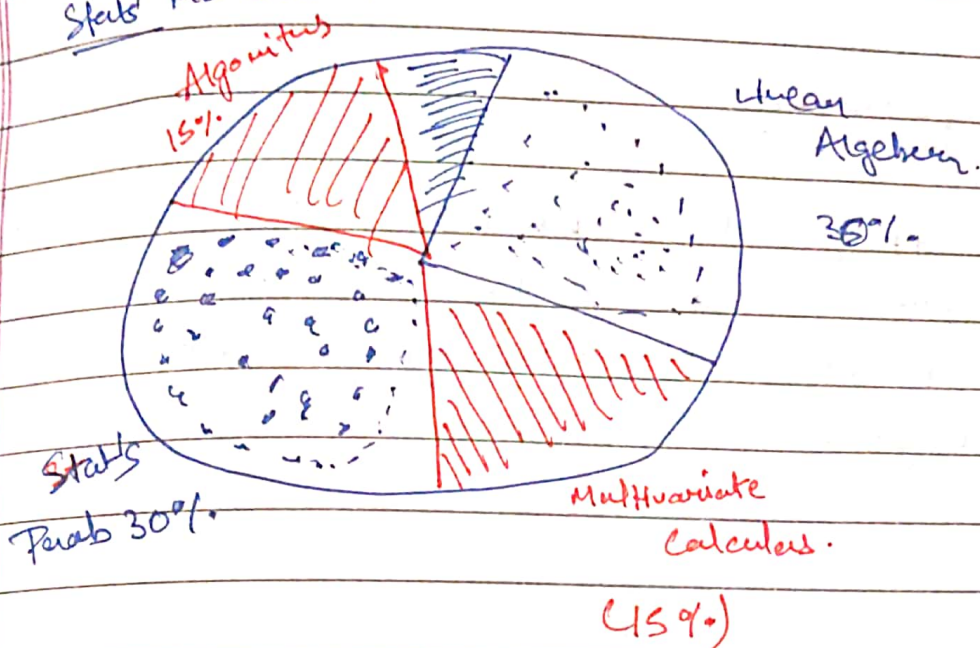 Stats
Algorithms
15%.
Linear
Algebra.
30%.
Stats
Prob 30%.
Multivariate
Calculus.
(15%)